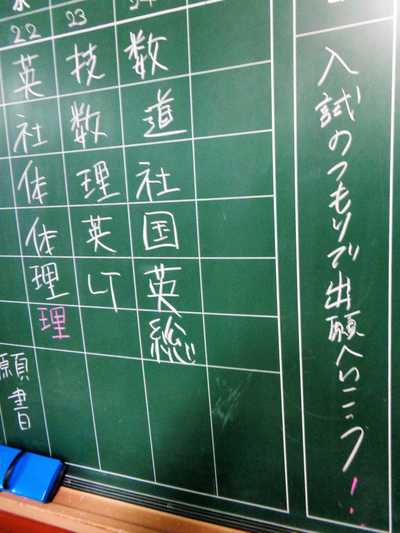 入試のつもりで出願へいこう!
22 23 24
英 技 数
社 数 道
体 理 社
体 英 国
理 LT 英
理 総
願書